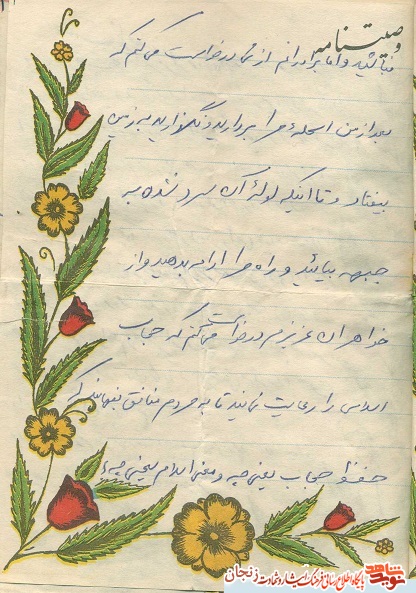 وصیتنامه
نمائید و اما برادرانم از شما درخواست می کنم که
بعد از من اسلحهٔ مرا بردارید و نگذارید به زمین
بیفتد و تا اینکه لولهٔ آن سرد نشده به
جبهه بیائید و راه مرا ادامه بدهید و از
خواهران عزیزم درخواست می کنم که حجاب
اسلامی را رعایت نمایند تا به مردم منافق بفهمانند که
حفظ حجاب یعنی چه و معنی اسلام یعنی چه
نوید شاهد
پایگاه اطلاع رسانی فرهنگ ایثار و شهادت زنجان